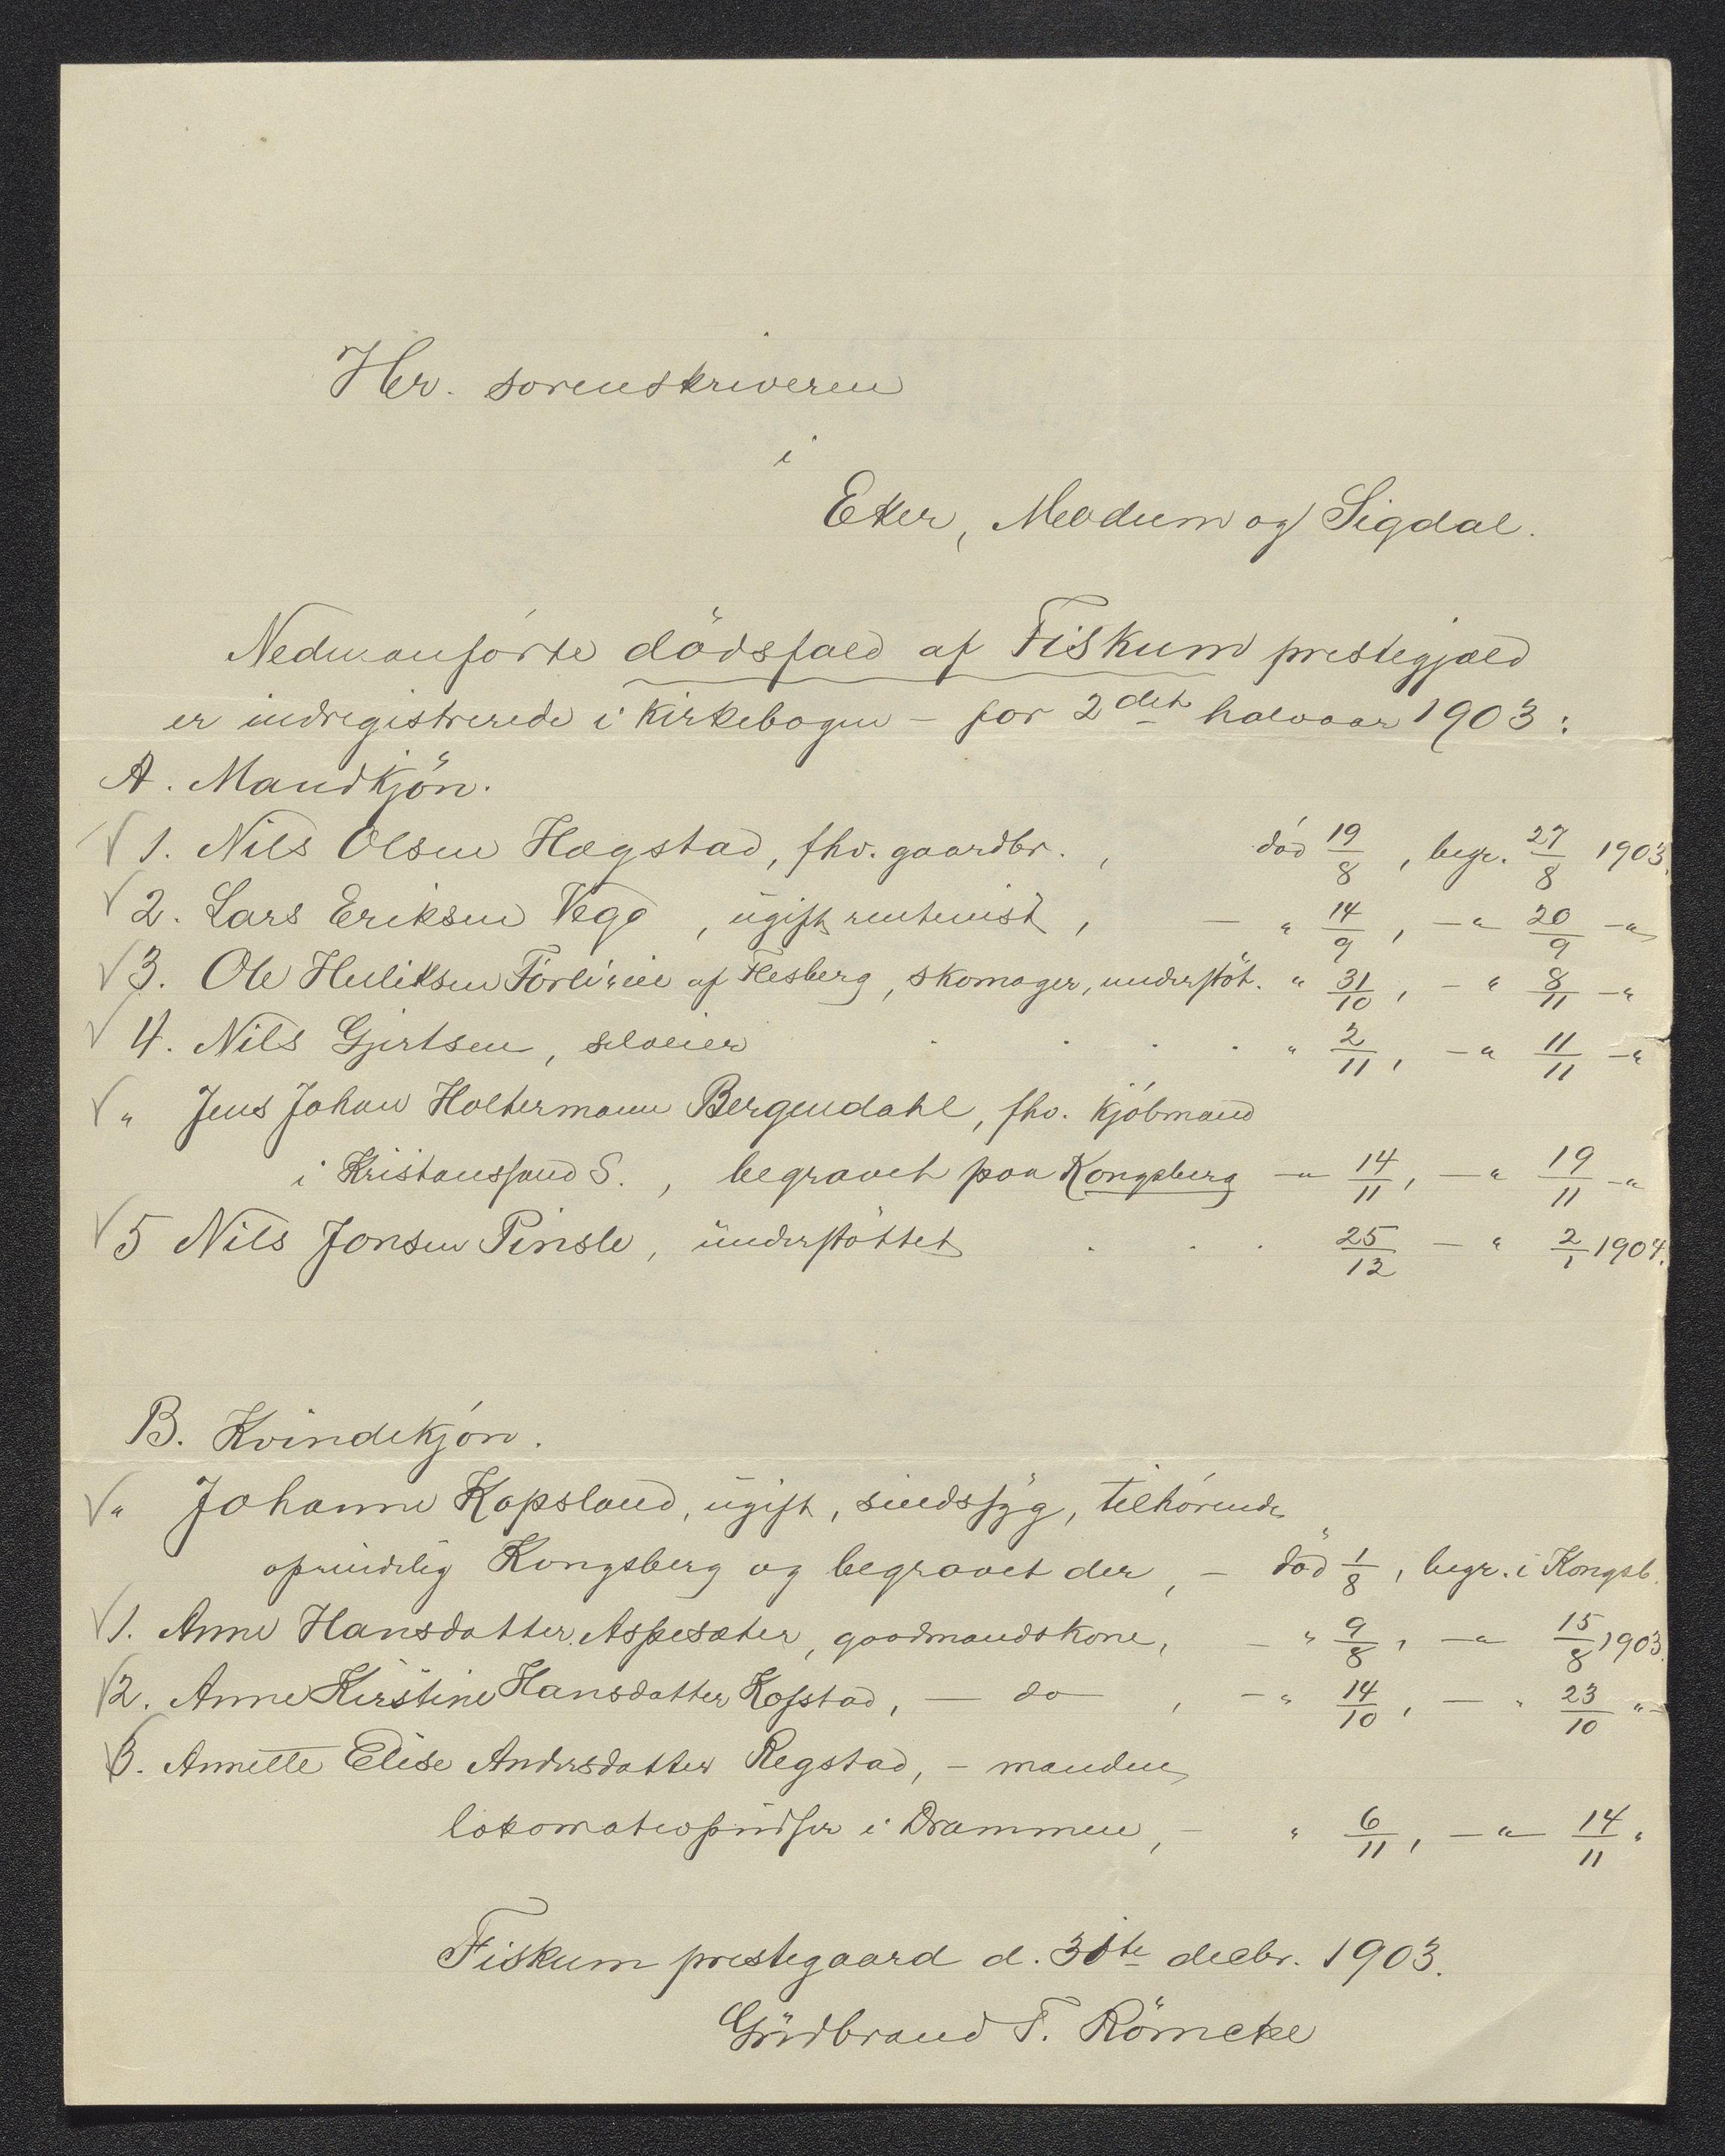 Hr. sorenskriveren
i
Eker, Modum og Sigdal.
Nedenanførte dödsfald af Fiskum prestegjæld
er indregistrerede i kirkebogen – for 2det halvaar 1903:
A. Mandkjön.
1. Nils Olsen Hægstad, fhv. gaardbr., död 19/8, begr. 27/8 1903.
2. Lars Eriksen Vego, ugift rentenist, — " 14/9, —"— 20/9 —"—
3. Ole Huliksen af Flesberg, skomager, understöt. " 31/10, — " 8/11 —"
4. Nils Gjertsen, selveier . . . . " 2/11, —" 11/11 —"
" Jens Johan Holtermann Bergendahl, fhv. kjöbmand
i Kristianssand S., begravet paa Kongsberg —"— 14/11, —" 19/11 —"
5 Nils Jonsen Pinsle, understöttet . . . 25/12 — " 2/1 1904.
B. Kvindekjön.
" Johanne Kopsland, ugift, sindssyg, tilhörende
oprindelig Kongsberg og begravet der, – död 1/8, begr. i Kongsb.
1. Anne Hansdatter Aspesæter, gaardmandskone, — " 9/8, —"— 15/8 1903.
2. Anne Kirstine Hansdatter Kopstad, — do —, —" 14/10, — " 23/10 "–
3. Annette Elise Andersdatter Regstad, – manden
lokomotivpudser i Drammen, – " 6/11, —"— 14/11 "
Fiskum prestegaard d. 31te decbr. 1903.
Gudbrand T. Römcke